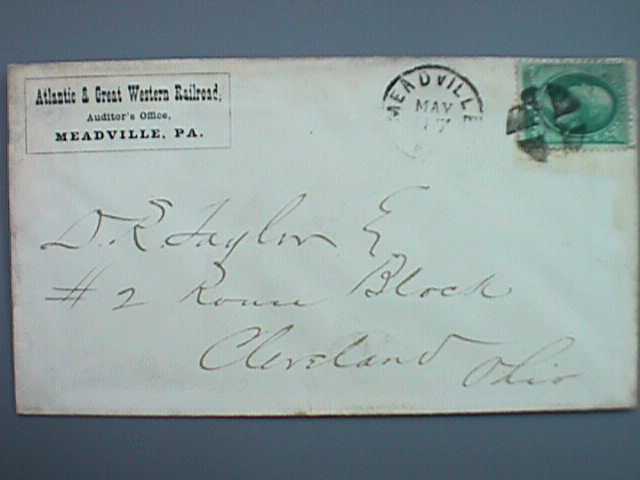 Atlantic & Great Western Railroad,
Auditor's Office,
MEADVILLE, PA.
MEADVILLE
MAY
17
D. R. Taylor E
# 2 Rouse Block
Cleveland
Ohio